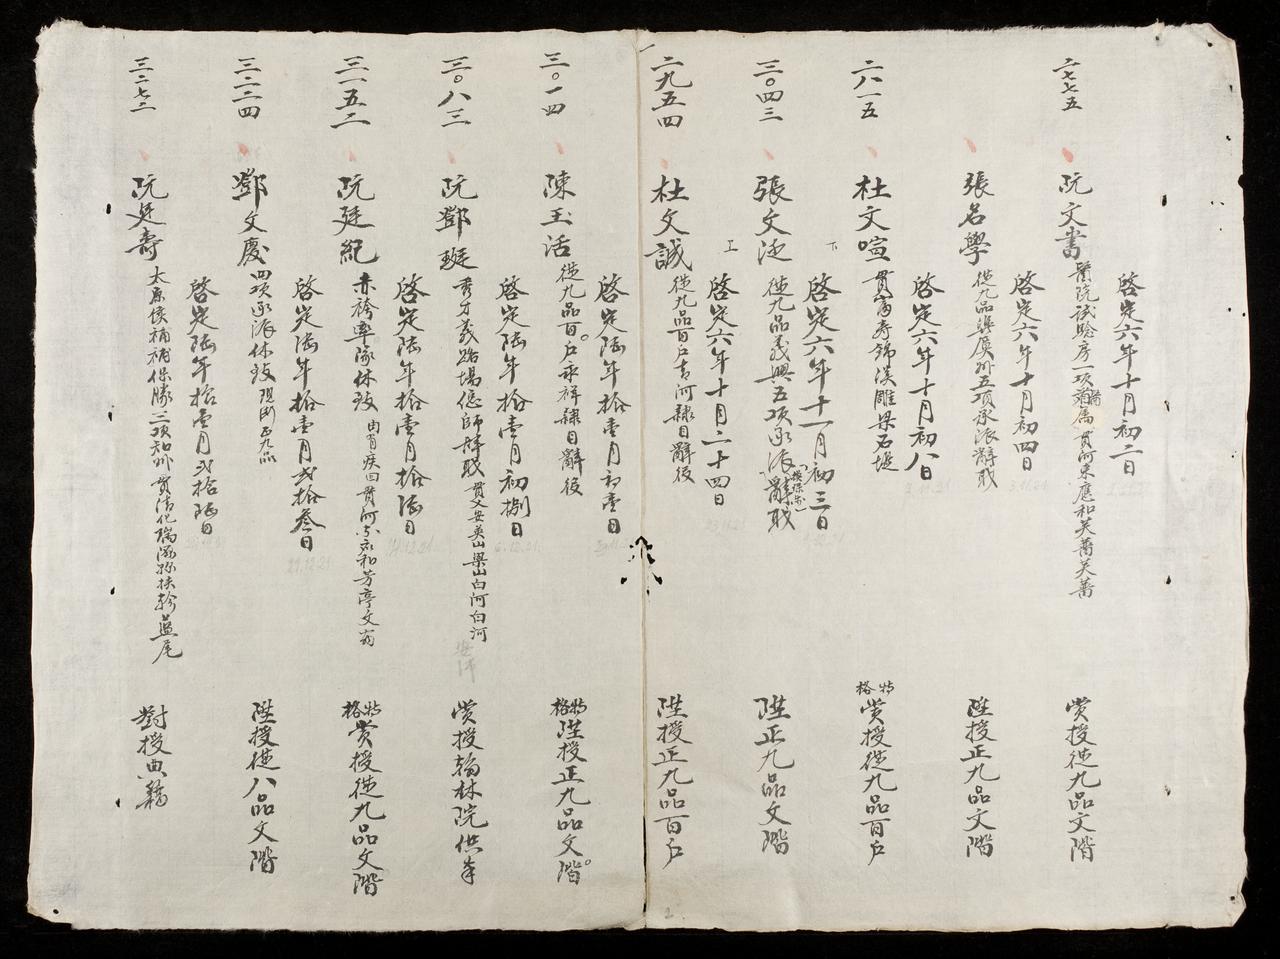 啓定六年十月初二日
二七七五
阮文書
醫院試驗房一項
貫河東應和芙蕾芙蕾
賞授從九品文階
啓定六年十月初四日
張名學
從九品 五項承派辭職
陞授正九品文階
啓定六年十月初八日
二八一五
杜文喧
貫富壽錦溪雕梁石堤
特格
賞授從九品百户
下
啓定六年十一月初三日
三〇四三
張文泛
從九品義興五項承派辭職
陞正九品文階
工
啓定六年十月二十四日
二九五四
杜文誠
從九品百户 河隸目辭役
陞授正九品百户
啓定陆年拾壹月初壹日
三〇一四
陳玉活
從九品百户永祥隸目辭役
特格
陞授正九品文階
啓定陆年拾壹月初捌日
三〇八三
阮鄧璇
秀才義路場 師辭職
貫乂安英山梁山白河白河
賞授翰林院供奉
啓定陆年拾壹月拾陆日
三一五二
阮廷紀
赤袴率隊休致
由有疾回貫河東 和芳亭文翁
特格
賞授從九品文階
啓定陆年拾壹月弍拾叁日
三二二四
鄧文慶
四項承派休致
正九品
陞授從八品文階
啓定陆年拾壹月弍拾陆日
三二七二
阮廷壽
太原候補 保勝三項知州貫清化 扶軫藍尾
對授典籍
2